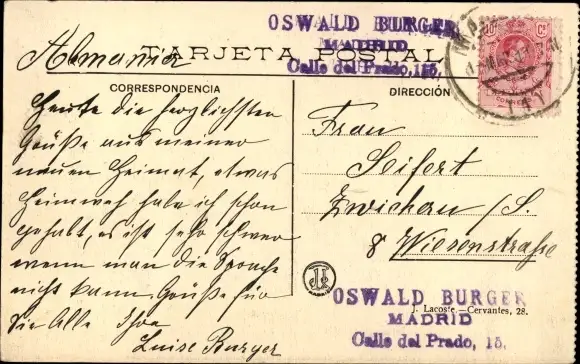 OSWALD BURGER
MADRID
Calle del Prado, 15.
Almania
TARJETA POSTAL
CORRESPONDENCIA
DIRECCIÓN
Heute die herzlichsten
Grüße aus meiner
neuen Heimat, etwas
Heimweh habe ich schon
gehabt, es ist sehr schwer
wenn man die Sprache
nicht kann. Grüße für
Sie Alle Ihre
Luise Burger
Frau
Seifert
Zwickau /S.
8 Wiesenstraße
OSWALD BURGER
J. Lacoste.-Cervantes, 28.
MADRID
Calle del Prado, 15.